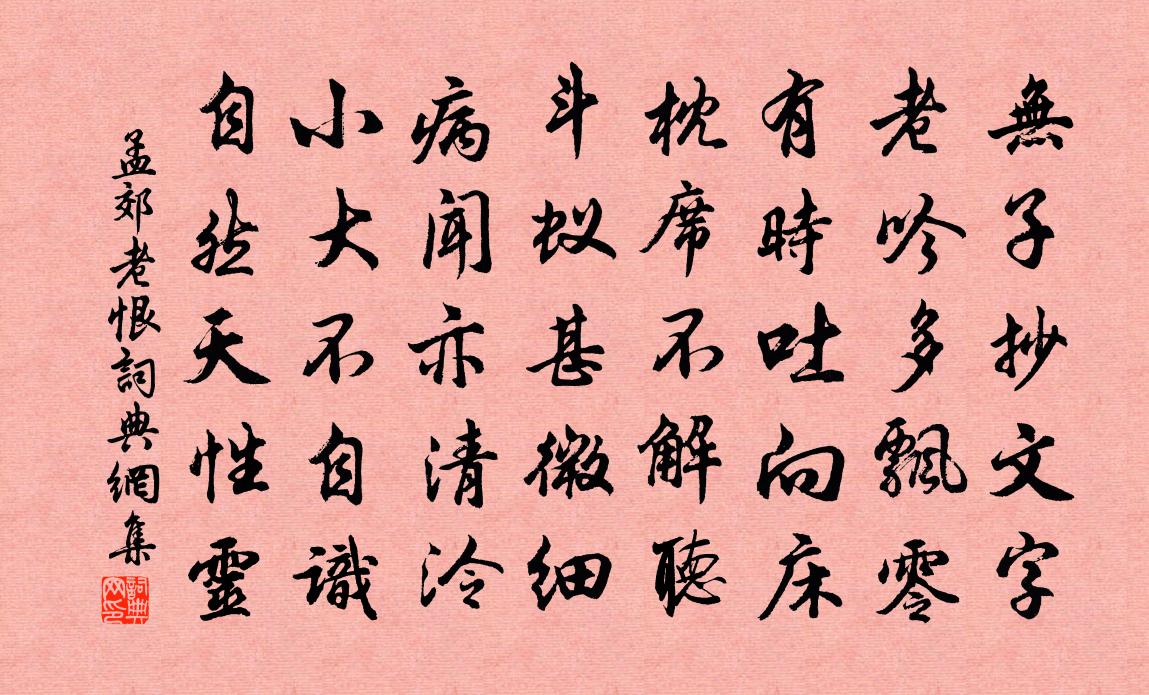 無子抄文字
老吟多飄零
有時吐向床
枕席不解聽
斗蚁甚微細
病闻亦清泠
小大不自識
自然天性靈
孟郊老恨詞典網集
詞典
网印